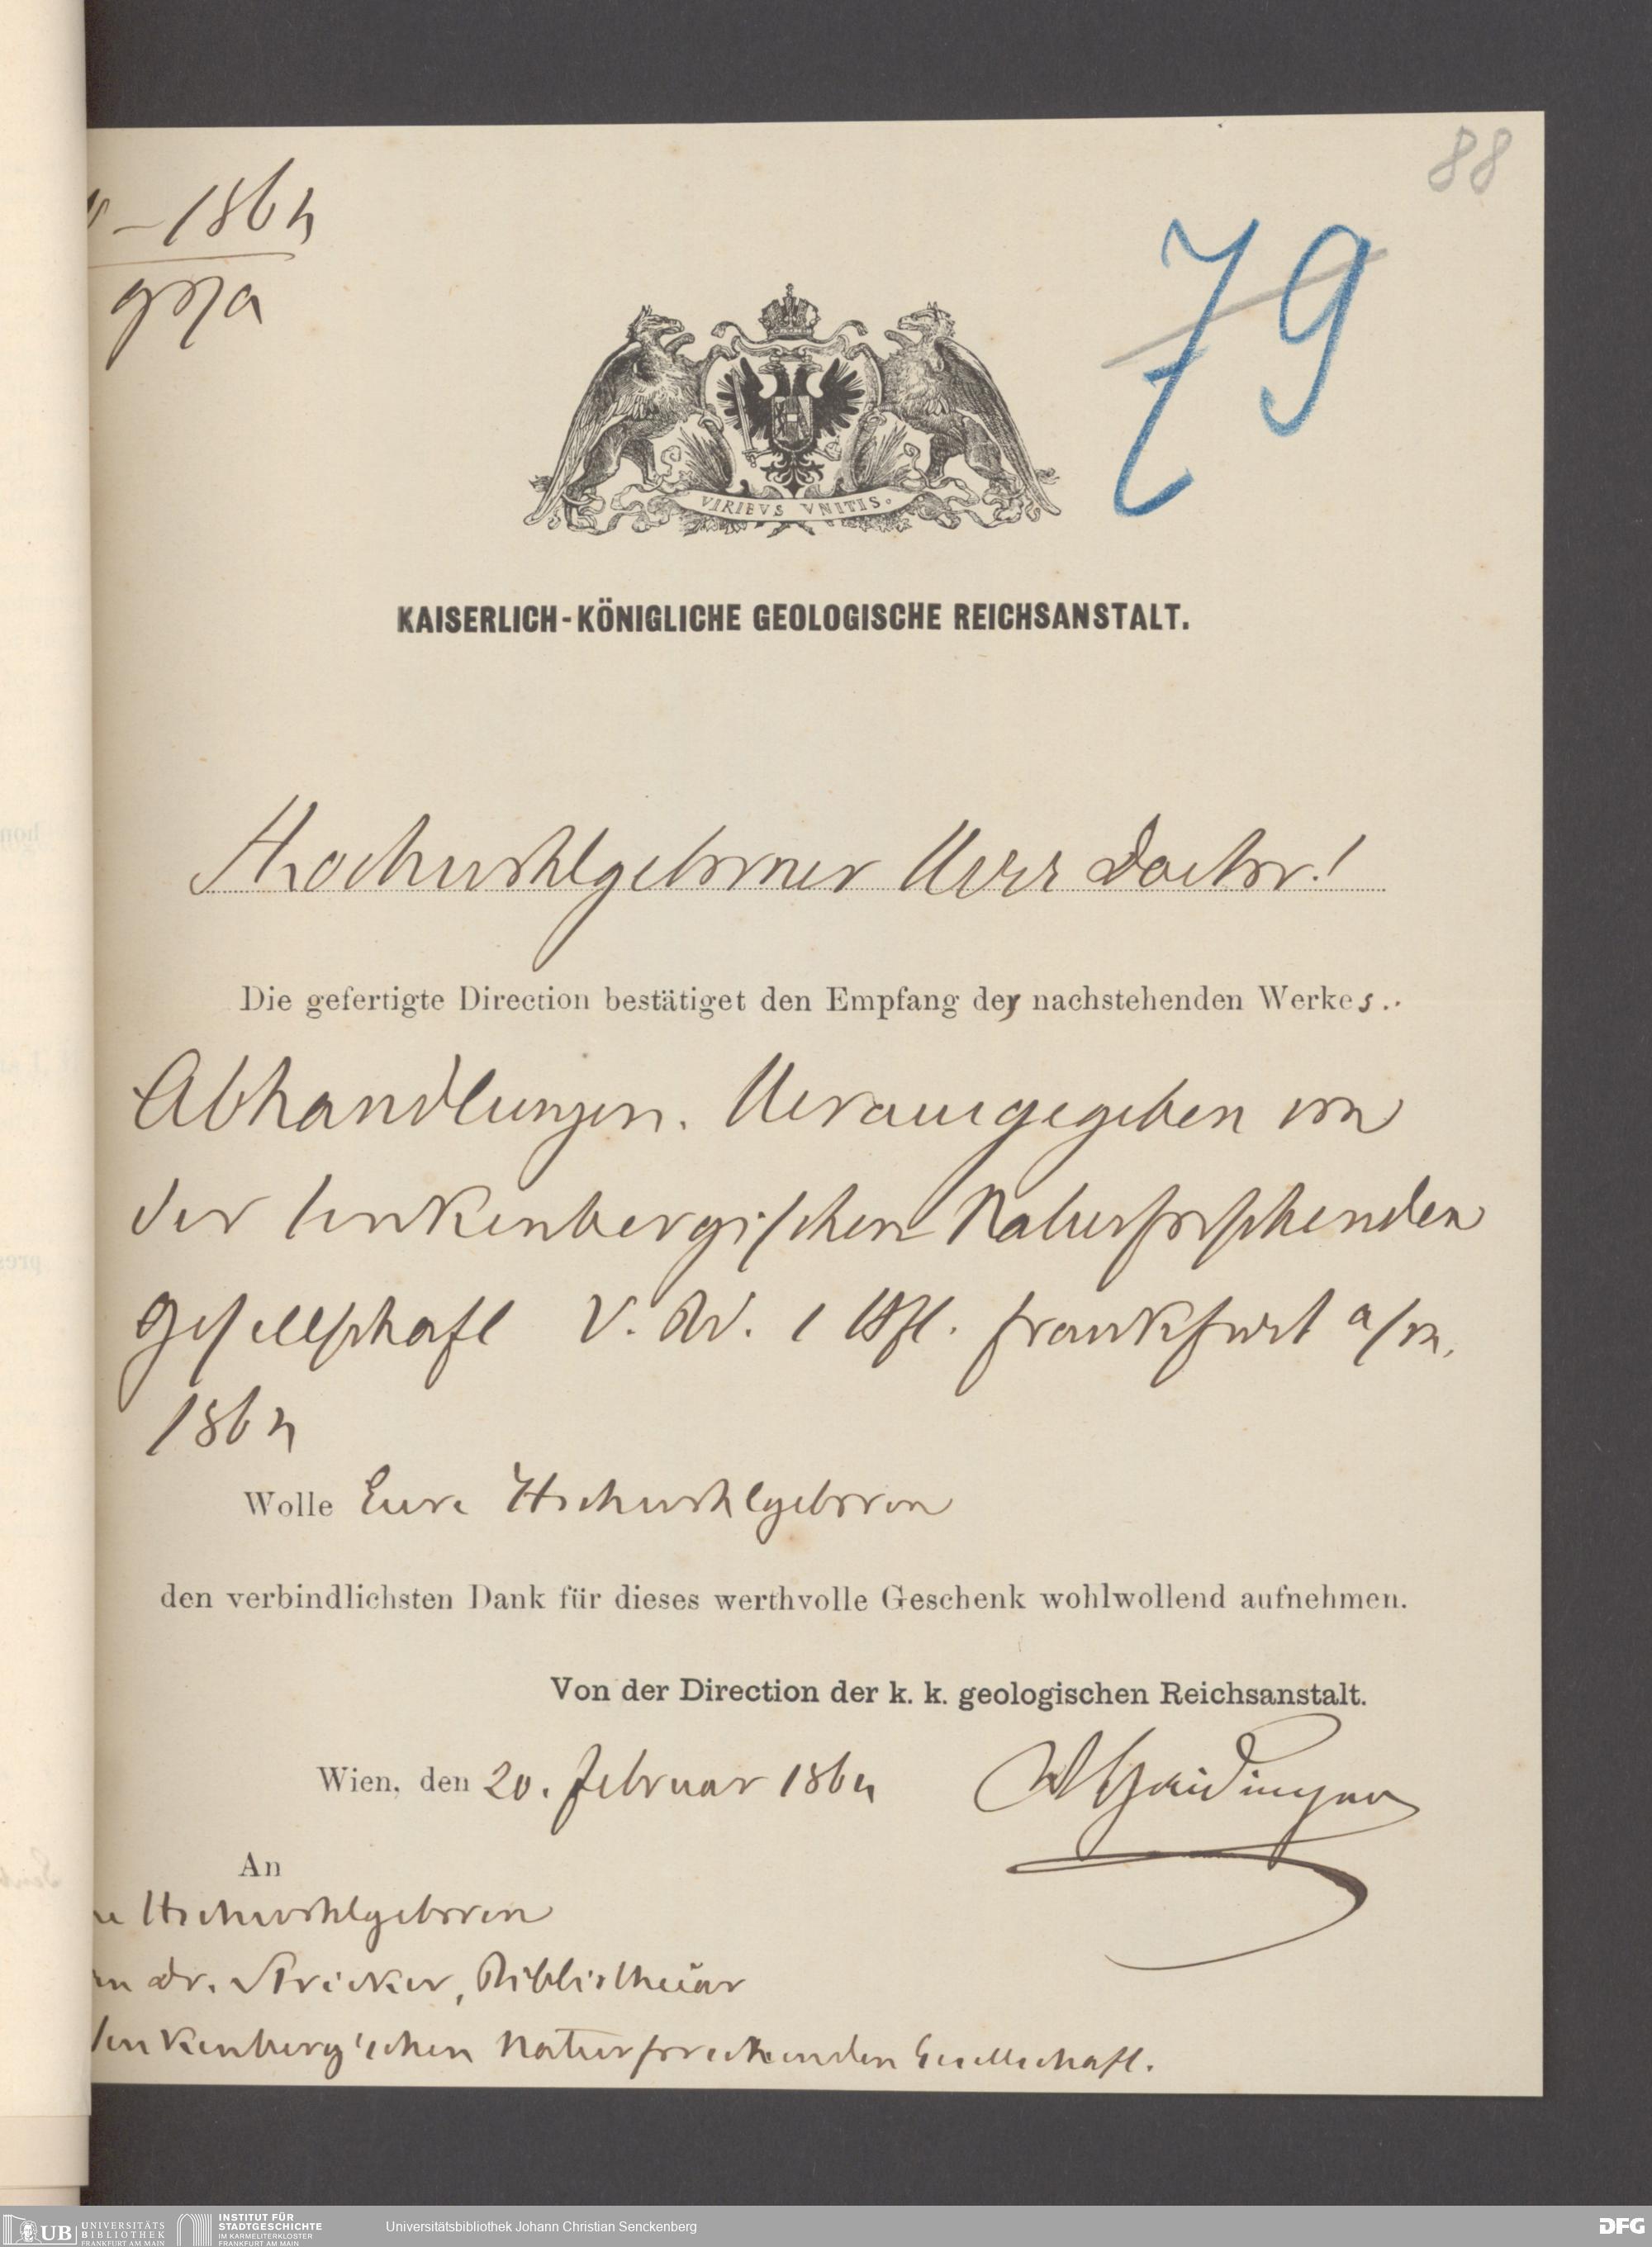 88
– 1864
79
VIRIBVS VNITIS.
KAISERLICH-KÖNIGLICHE GEOLOGISCHE REICHSANSTALT.
Hochwohlgeborner Herr Doctor!
Die gefertigte Direction bestätiget den Empfang des nachstehenden Werkes..
Abhandlungen. Herausgegeben von
der Senkenbergischen Naturforschenden
Gesellschaft V. Bd. 1 Hft. Frankfurt a/m.
1864
Wolle Eure Hochwohlgeboren
den verbindlichsten Dank für dieses werthvolle Geschenk wohlwollend aufnehmen.
Von der Direction der k. k. geologischen Reichsanstalt.
Wien, den 20. Februar 1864 W Haidinger
An
Hochwohlgeboren
Dr. Stricker, Bibliothecär
Senkenberg'schen Naturforschenden Gesellschaft.
UB UNIVERSITÄTS BIBLIOTHEK FRANKFURT AM MAIN
INSTITUT FÜR STADTGESCHICHTE IM KARMELITERKLOSTER FRANKFURT AM MAIN
Universitätsbibliothek Johann Christian Senckenberg
DFG